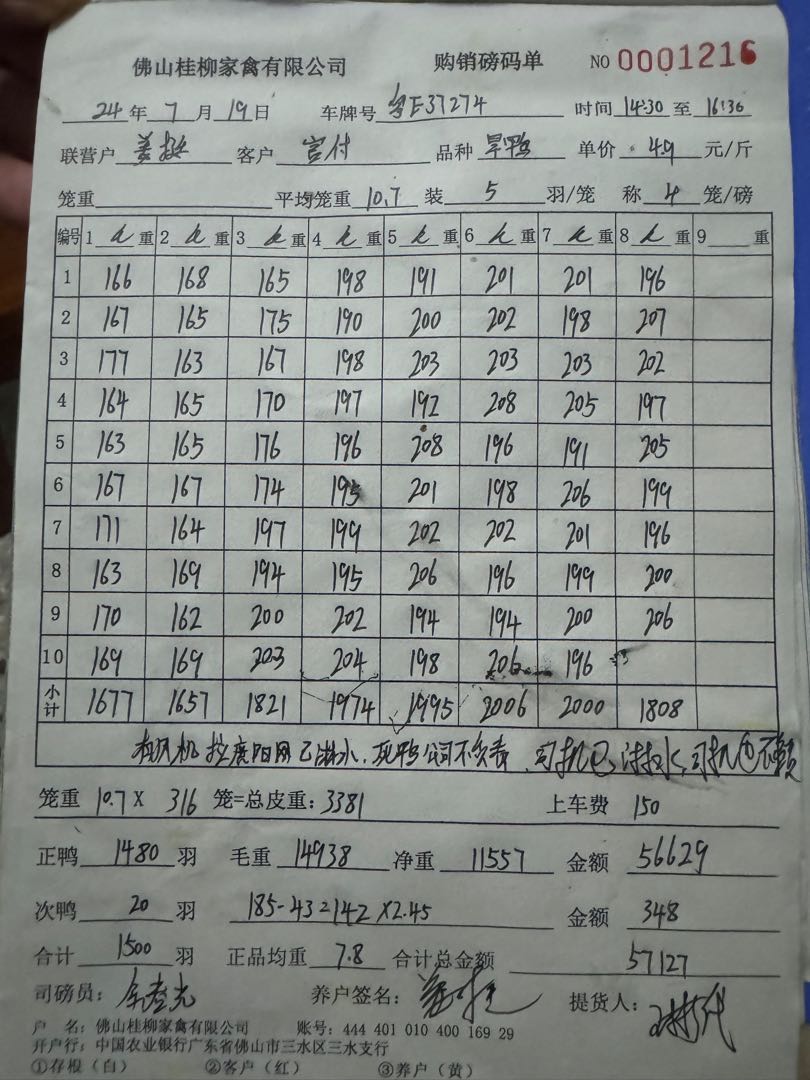 佛山桂柳家禽有限公司 购销磅码单 NO 0001216
24 年 7 月 19 日 车牌号 粤E37274 时间 14:30 至 16:36
联营户 客户 宫付 品种 旱鸭 单价 4.9 元/斤
笼重 平均笼重 10.7 装 5 羽/笼 称 4 笼/磅
编号 1 重 2 重 3 重 4 重 5 重 6 重 7 重 8 重 9 重
1 166 168 165 198 191 201 201 196
2 167 165 175 190 200 202 198 207
3 177 163 167 198 203 203 203 202
4 164 165 170 197 192 208 205 197
5 163 165 176 196 208 196 191 205
6 167 167 174 195 201 198 206 199
7 171 164 197 199 202 202 201 196
8 163 169 194 195 206 196 199 200
9 170 162 200 202 194 194 200 206
10 169 169 203 204 198 206 196
小计 1677 1657 1821 1974 1995 2006 2000 1808
有风机 阳网 已淋水、死鸭公司不负责
笼重 10.7 X 316 笼=总皮重: 3381 上车费 150
正鸭 1480 羽 毛重 14938 净重 11557 金额 56629
次鸭 20 羽 185-43=142 X2.45 金额 348
合计 1500 羽 正品均重 7.8 合计总金额 57127
司磅员: 养户签名: 提货人:
户 名: 佛山桂柳家禽有限公司 账号: 444 401 010 400 169 29
开户行: 中国农业银行广东省佛山市三水区三水支行
①存根(白) ②客户(红) ③养户(黄)